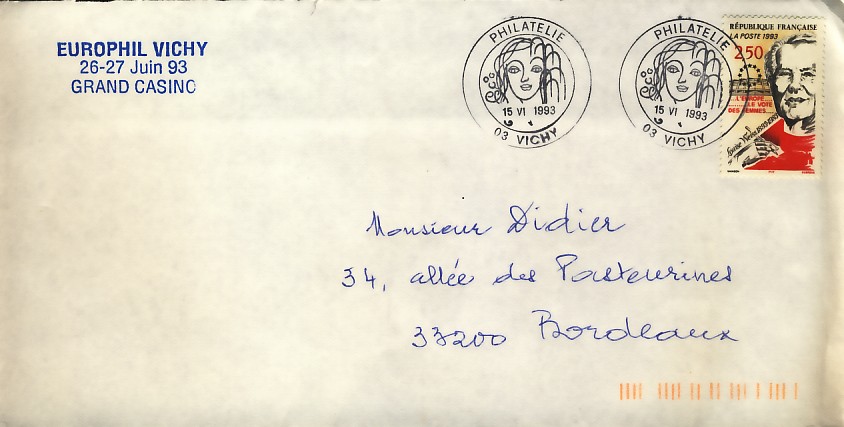 EUROPHIL VICHY
26-27 Juin 93
GRAND CASINO
PHILATELIE
15 VI 1993
03 VICHY
PHILATELIE
15 VI 1993
03 VICHY
RÉPUBLIQUE FRANÇAISE
LA POSTE 1993
2,50
L'EUROPE
LE VOTE
DES FEMMES
Louise Weiss 1893-1983
Monsieur Didier
34, allée des Pasteurines
33200 Bordeaux